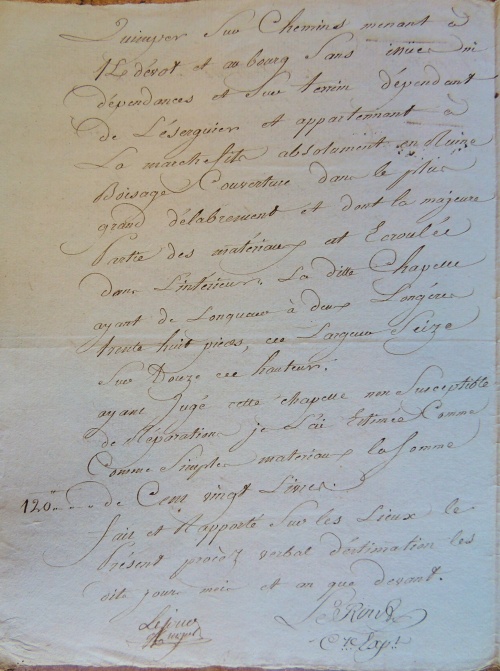 quimper sur Chemins menant à
St Dévot et au bourg sans issües ni
dépendances et sur terrein dépendant
de L'éserguier et appartenant à
La marche fils absolument en Ruine
Boisage Couverture dans le plus
grand délabrement et dont la majeure
Partie des matériaux est Ecroulée
dans L'intérieur. La ditte Chapelle
ayant de Longueur à deux Longéres
trente huit pieds, ces Largeur Seize
Sur Douze de hauteur.
ayant Jugé cette chapelle non Susceptible
de Réparation je L'ai Estimée Comme
Comme Simples materiaux la somme
120# de Cent vingt Livres.
fait et Rapporté Sur les Lieux le
Présent procéz verbal d'estimation les
dits jour mois et an que devant.
Cre Expt